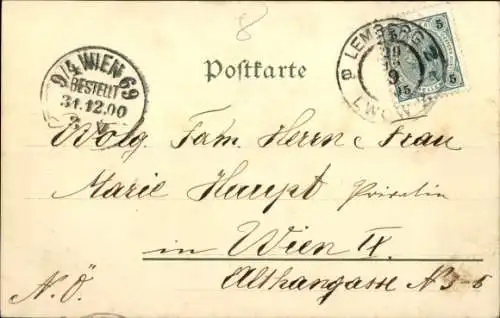 8
Postkarte
LEMBERG 2
LWÓW
5 5
9/4 WIEN 69
BESTELLT
31.12.00
Wolg. Fam. Herrn & Frau
Marie Haupt Privatin
in Wien IX.
Althangasse N 3-5
N.Ö.